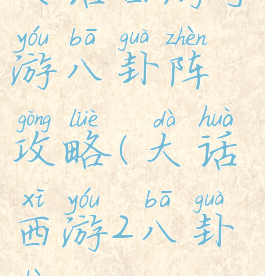 yóu bā guà zhèn
游八卦阵
gōng lüè dà huà
攻略(大话
xī yóu bā guà
西游2八卦